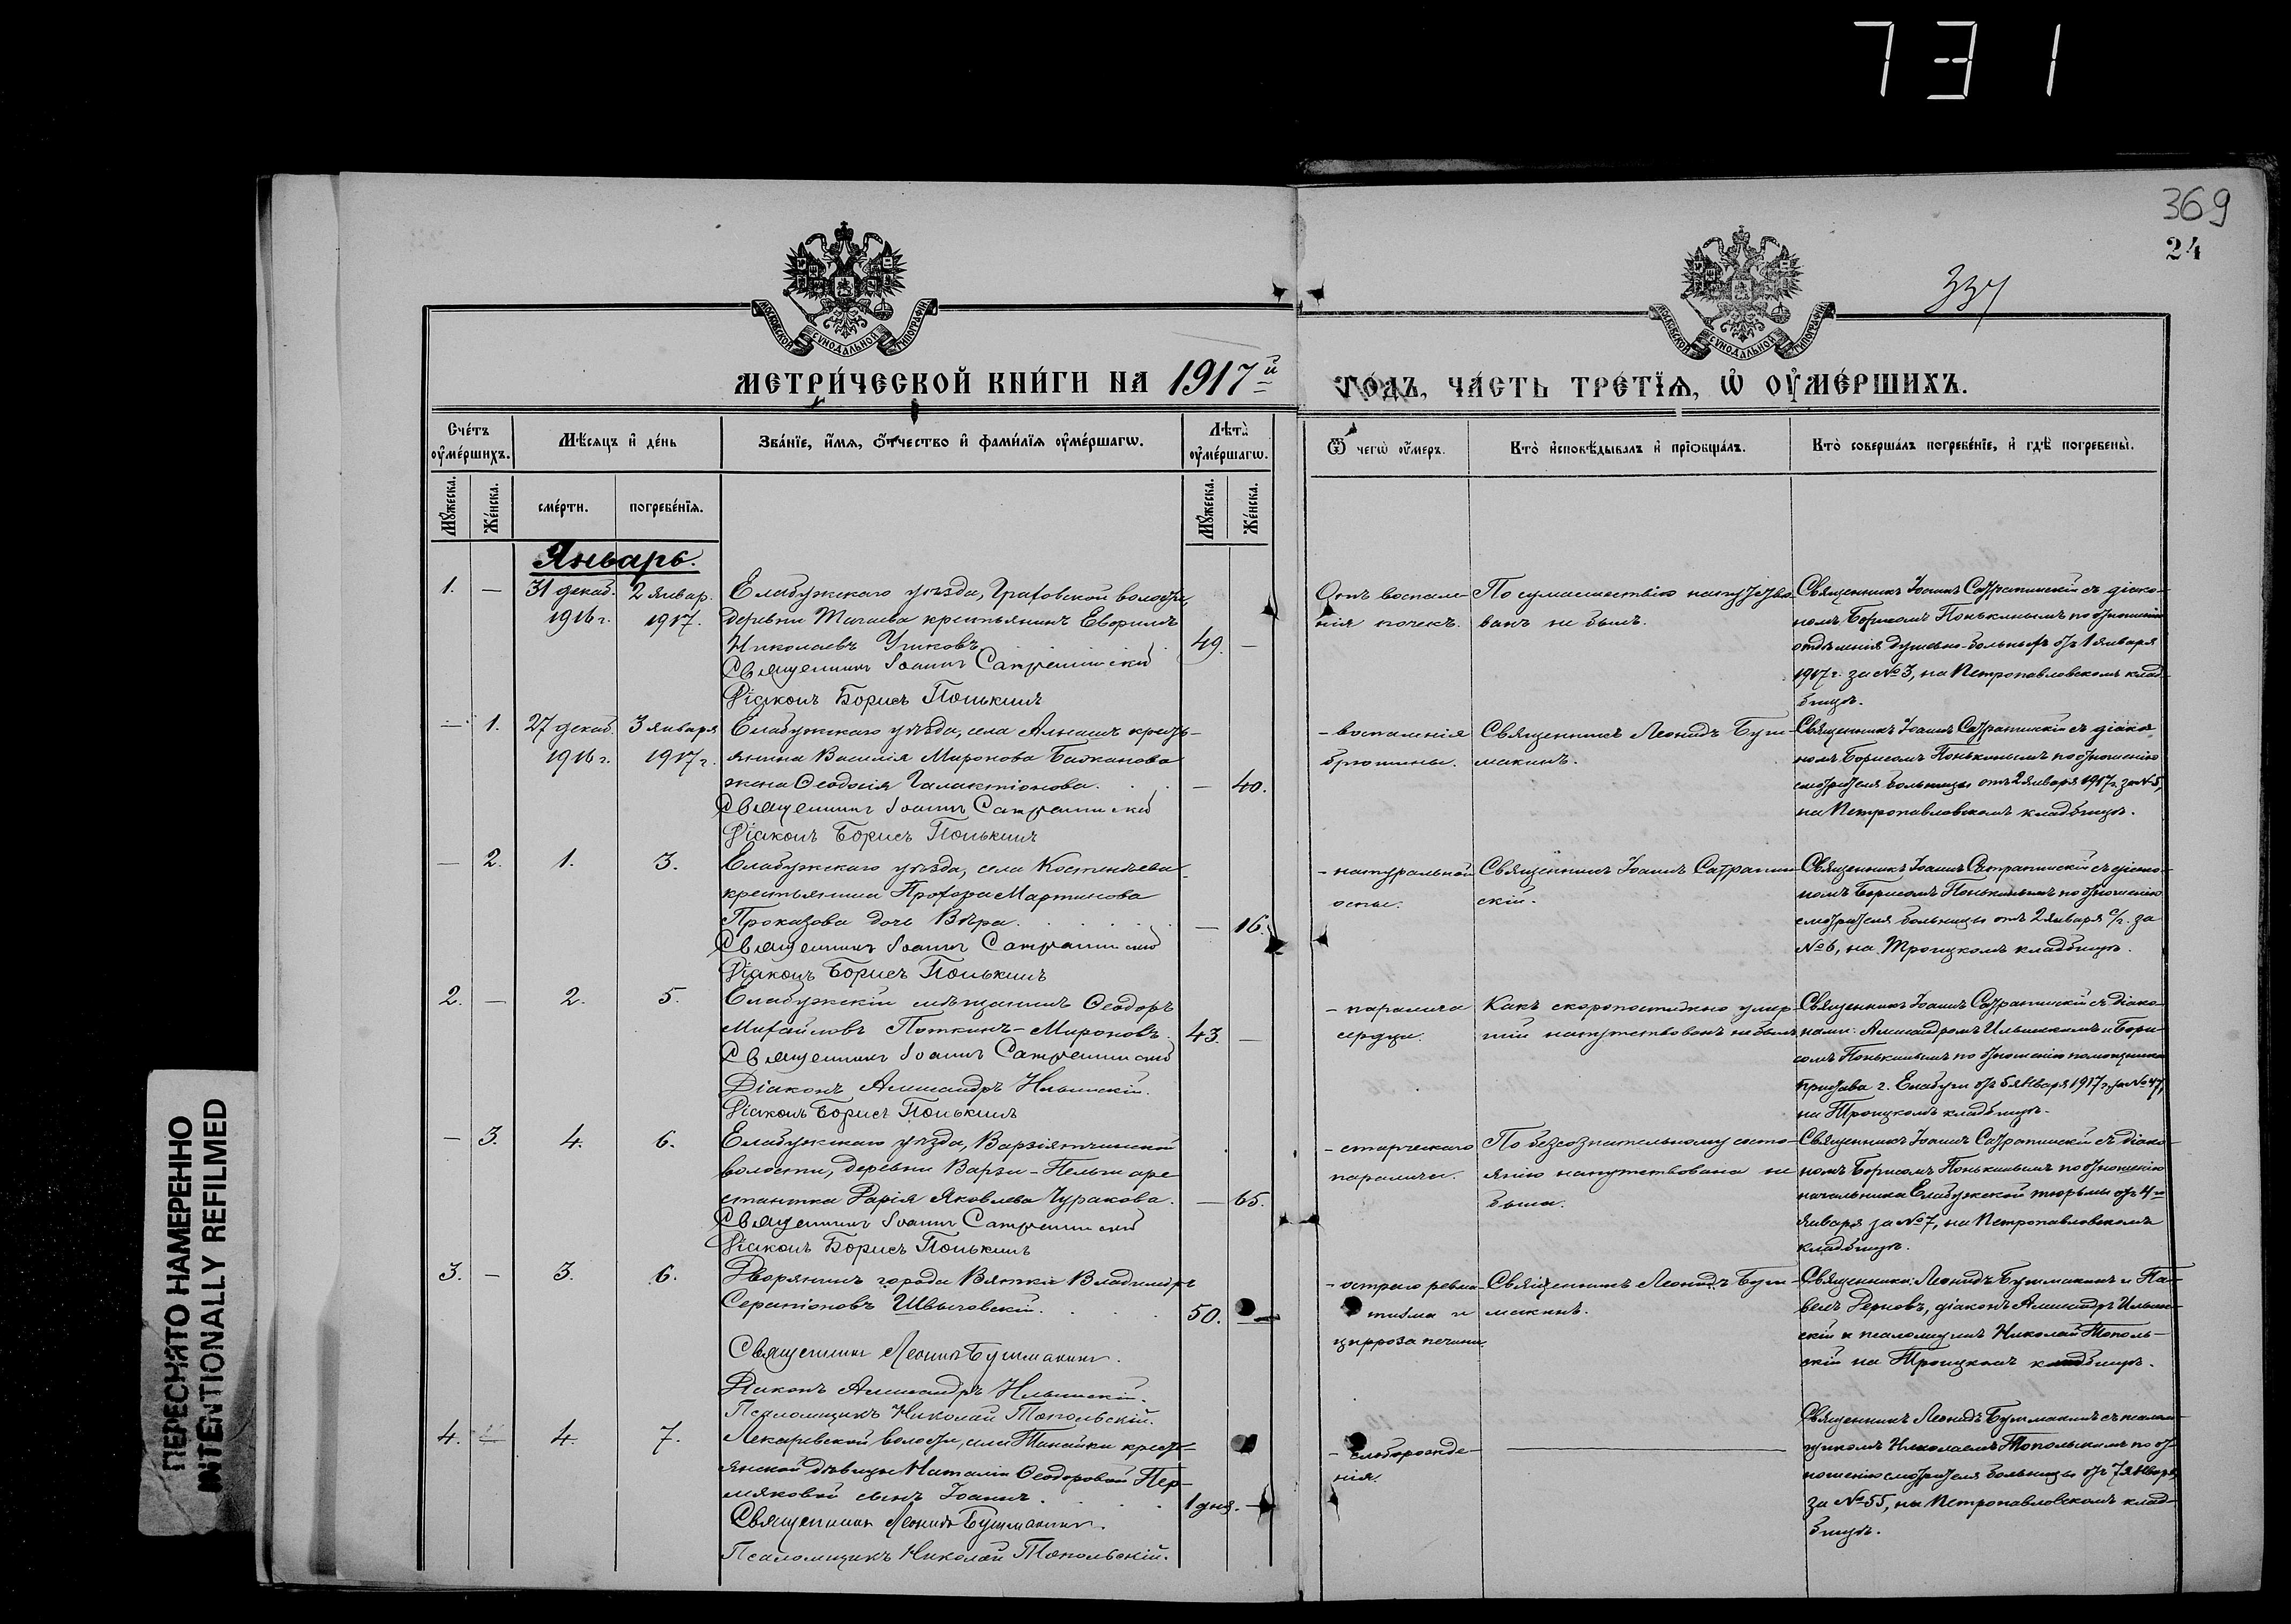 731
369
24
337
МОСКОВСКОЙ СѴНОДАЛЬНОЙ ТИПОГРАФІИ
МОСКОВСКОЙ СѴНОДАЛЬНОЙ ТИПОГРАФІИ
МЕТРИ́ЧЕСКОЙ КНИ́ГИ НА 1917й ГО́ДЪ, ЧА́СТЬ ТРЕ́ТІѦ, Ѡ ОУ҆МЕ́РШИХЪ.
Сче́тъ оу҆ме́ршихъ.
Мѣ́сяцъ и҆ де́нь
Зва́нїе, и҆́мѧ, ѻ҆́тчество и҆ фами́лїѧ оу҆ме́ршагѡ.
Лѣ́та оу҆ме́ршагѡ.
Ѿ чегѡ̀ оу҆́меръ.
Кто̀ и҆сповѣ́дывалъ и҆ прїѡбща́лъ.
Кто̀ соверша́лъ погребе́нїе, и҆ гдѣ̀ погребены̀.
Мꙋ́жеска.
Же́нска.
сме́рти.
погребе́нїѧ.
Мꙋ́жеска.
Же́нска.
Январь.
1. — 31 декаб. 2 январ. Елабужскаго уѣзда, Граховской волости,
1916 г. 1917. деревни Тагаева крестьянинъ
Николаевъ 49. —
Священникъ Іоаннъ Сатрапинскій
Діаконъ Борисъ Понькинъ
Отъ воспале-
нія почекъ.
По сумасшествію напутство-
ванъ не былъ.
Священникъ Іоаннъ Сатрапинскій съ діако-
номъ Борисомъ Понькинымъ по отношенію
отдѣленія душевно-больныхъ отъ 1 января
1917 г. за № 3, на Петропавловскомъ клад-
бищѣ.
— 1. 27 декаб. 3 января Елабужскаго уѣзда, села Алнашъ кресть-
1916 г. 1917 г. янина Василія Миронова Бажанова
жена Ѳеодосія Галактіонова. — 40.
Священникъ Іоаннъ Сатрапинскій
Діаконъ Борисъ Понькинъ
- воспаленія
брюшины.
Священникъ Леонидъ Буш-
макинъ.
Священникъ Іоаннъ Сатрапинскій съ діако-
номъ Борисомъ Понькинымъ по отношенію
смотрителя больницы отъ 2 января 1917 г. за № 5,
на Петропавловскомъ кладбищѣ.
— 2. 1. 3. Елабужскаго уѣзда, села Костенѣева
крестьянина Прохора Мартинова
Проказова дочь Вѣра. — 16.
Священникъ Іоаннъ Сатрапинскій
Діаконъ Борисъ Понькинъ
- натуральной
оспы.
Священникъ Іоаннъ Сатрапин-
скій.
Священникъ Іоаннъ Сатрапинскій съ діако-
номъ Борисомъ Понькинымъ по отношенію
смотрителя больницы отъ 2 января с/г. за
№ 6, на Троицкомъ кладбищѣ.
2. — 2. 5. Елабужскій мѣщанинъ Ѳеодоръ
Михайловъ Поткинъ-Мироновъ. 43. —
Священникъ Іоаннъ Сатрапинскій
Діаконъ Александръ Ильинскій.
Діаконъ Борисъ Понькинъ
- паралича
сердца.
Какъ скоропостижно умер-
шій напутствованъ не былъ
Священникъ Іоаннъ Сатрапинскій съ діако-
нами: Александромъ Ильинскимъ и Бори-
сомъ Понькинымъ по отношенію помощника
пристава г. Елабуги отъ 5 января 1917 г. за № 47,
на Троицкомъ кладбищѣ.
— 3. 4. 6. Елабужскаго уѣзда, Варзіятчинской
волости, деревни Варзи-Пельги аре-
стантка Дарія Яковлева Чуракова. — 65.
Священникъ Іоаннъ Сатрапинскій
Діаконъ Борисъ Понькинъ
- старческаго
паралича.
По безсознательному состо-
янію напутствована не
была.
Священникъ Іоаннъ Сатрапинскій съ діако-
номъ Борисомъ Понькинымъ по отношенію
начальника Елабужской тюрьмы отъ 4-го
января за № 7, на Петропавловскомъ
кладбищѣ.
3. — 3. 6. Дворянинъ города Вятки Владиміръ
Серапіоновъ Швыковскій. 50. —
Священникъ Леонидъ Бушмакинъ.
Діаконъ Александръ Ильинскій.
Псаломщикъ Николай Топольскій.
- остраго ревма-
тизма и
цирроза печени.
Священникъ Леонидъ Буш-
макинъ.
Священники: Леонидъ Бушмакинъ и Па-
велъ Дерновъ, діаконъ Александръ Ильин-
скій и псаломщикъ Николай Тополь-
скій на Троицкомъ кладбищѣ.
4. — 4. 7. Лекаревской волости, села Танайки кресть-
янской дѣвицы Наталіи Ѳеодоровой Пер-
мяковой сынъ Іоаннъ. 1 дня. —
Священникъ Леонидъ Бушмакинъ.
Псаломщикъ Николай Топольскій.
- слаборожде-
нія.
Священникъ Леонидъ Бушмакинъ съ псалом-
щикомъ Николаемъ Топольскимъ по от-
ношенію смотрителя больницы отъ 7 января
за № 55, на Петропавловскомъ клад-
бищѣ.
ПЕРЕСНЯТО НАМЕРЕННО
INTENTIONALLY REFILMED